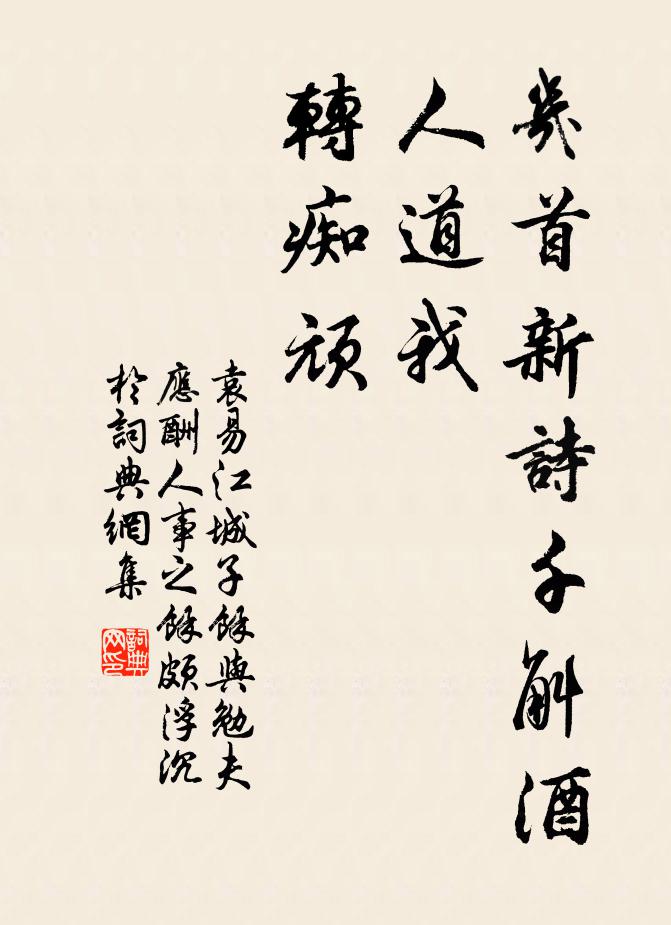 幾首新詩千斛酒
人道我
轉痴頑
袁易江城子餘與勉夫
應酬人事之餘頗浮沉
於詞典網集
詞典
网印